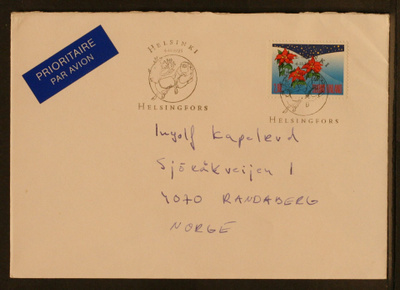 PRIORITAIRE
PAR AVION
HELSINKI
HELSINGFORS
HELSINGFORS
Ingolf Kapelrud
1
4070 RANDABERG
NORGE